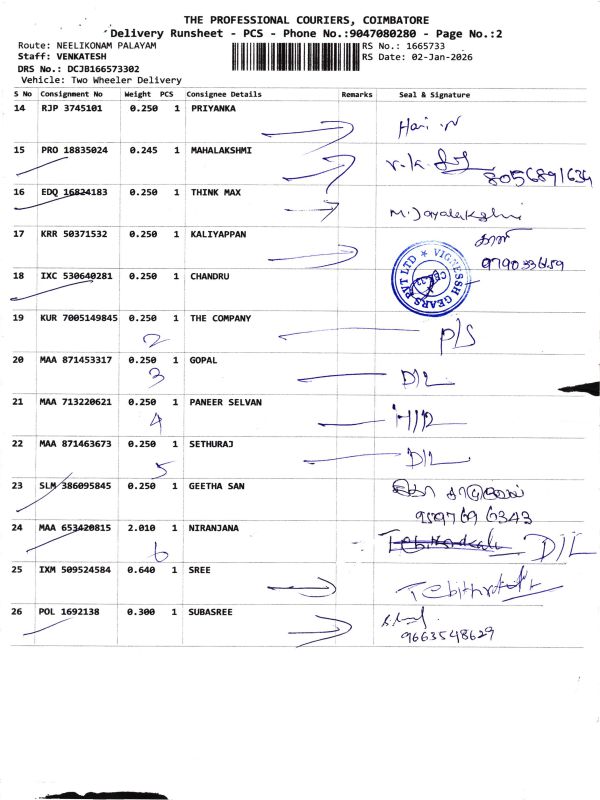 THE PROFESSIONAL COURIERS, COIMBATORE
Delivery Runsheet - PCS - Phone No.:9047080280 - Page No.:2
Route: NEELIKONAM PALAYAM
RS No.: 1665733
Staff: VENKATESH
RS Date: 02-Jan-2026
DRS No.: DCJB166573302
Vehicle: Two Wheeler Delivery
S No Consignment No Weight PCS Consignee Details Remarks Seal & Signature
14 RJP 3745101 0.250 1 PRIYANKA
Hari
15 PRO 18835024 0.245 1 MAHALAKSHMI
8056891634
16 EDQ 16824183 0.250 1 THINK MAX
M. Jayalakshmi
17 KRR 50371532 0.250 1 KALIYAPPAN
VIGNESSH GEARS PVT LTD
18 IXC 530640281 0.250 1 CHANDRU
19 KUR 7005149845 0.250 1 THE COMPANY
2 P/S
20 MAA 871453317 0.250 1 GOPAL
3 D/L
21 MAA 713220621 0.250 1 PANEER SELVAN
4
22 MAA 871463673 0.250 1 SETHURAJ
5 D/L
23 SLM 386095845 0.250 1 GEETHA SAN
9597696343
24 MAA 653420815 2.010 1 NIRANJANA
6 D/L
25 IXM 509524584 0.640 1 SREE
26 POL 1692138 0.300 1 SUBASREE
9663548629